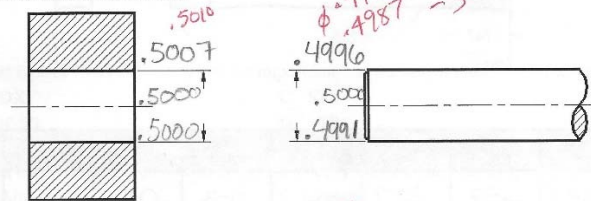 .5010
.4987
.5007
.5000
.5000
.4996
.5000
.4991